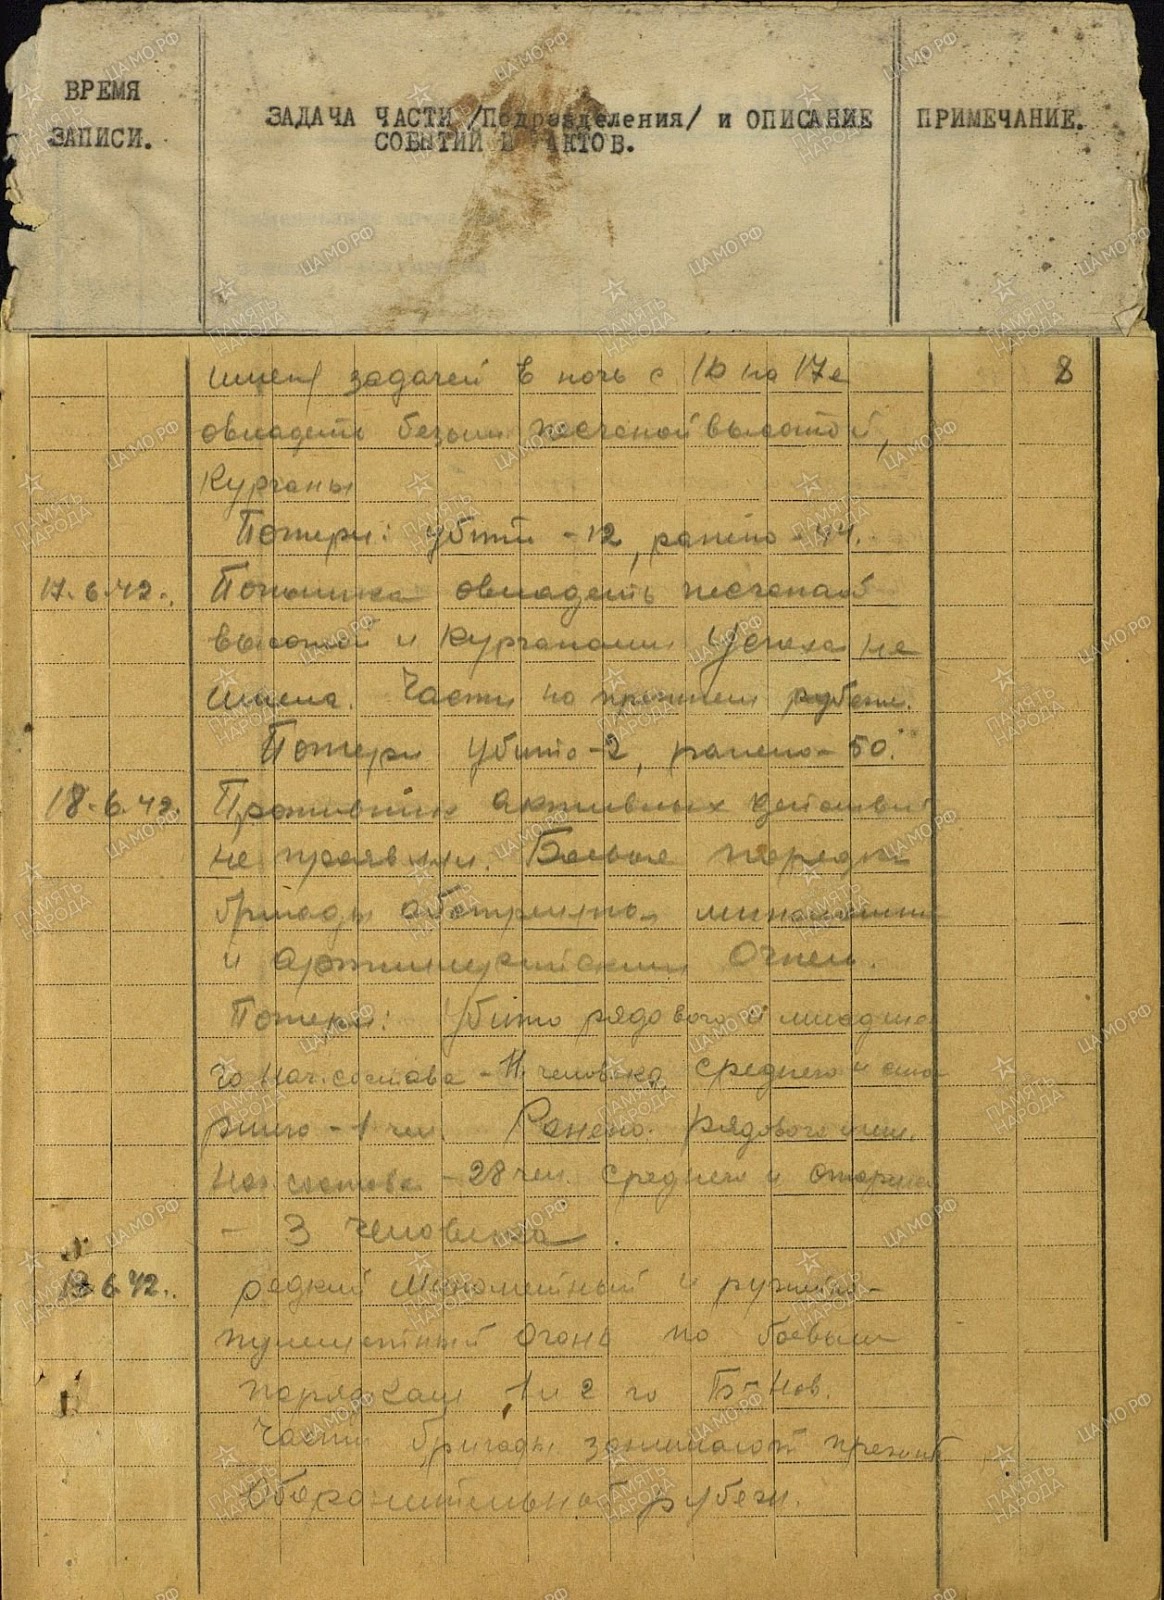 ВРЕМЯ
ЗАПИСИ.
ЗАДАЧА ЧАСТИ /Подразделения/ и ОПИСАНИЕ
СОБЫТИЙ И АКТОВ.
ПРИМЕЧАНИЕ.
8
имея задачей в ночь с 16 на 17е
овладеть безым песчаной высотой,
Курганы
Потери: убито - 12, ранено - 44.
17.6.42. Попытка овладеть песчаной
высотой и Курганами Успеха не
имела. Части на прежнем рубеже.
Потери убито - 2, ранено - 50.
18.6.42. Противник активных действий
не проявлял. Боевые порядки
бригады минометным
и артиллерийским Огнем.
Потери: Убито рядового и младше
го нач. состава - 11 человека среднего и ста
ршего - 1 чел. Ранено рядового и мл.
нач состава - 28 чел. среднего и старше
- 3 человека.
6.42. редкий Минометный и ружейно-
пулеметный Огонь по боевым
порядкам 1 и 2 го Б-нов.
Части бригады занимают прежний
Оборонительный рубеж.
ПАМЯТЬ
НАРОДА
ЦАМО.РФ